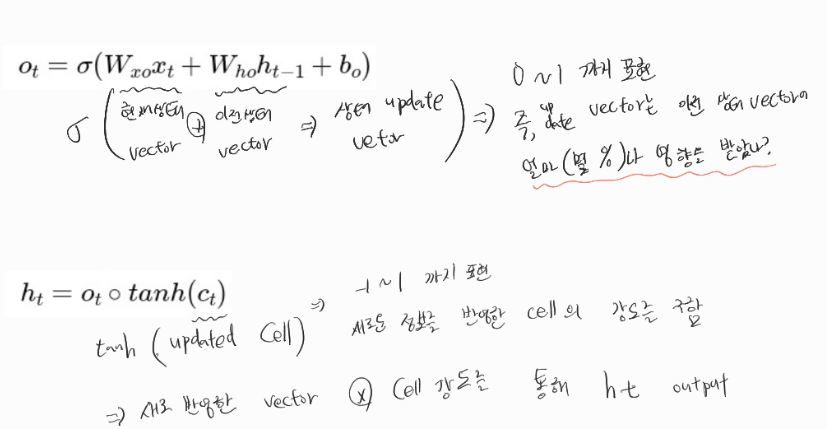 o_t = σ(W_{xo}x_t + W_{ho}h_{t−1} + b_o)
σ ( 현재상태 vector ⊕ 이전상태 vector ⇒ 상태 update vetor ) ⇒ 0 ~ 1 까지 표현
즉, update vector는 이전 상태 vector의
얼마(몇 %)나 영향을 받았나?
h_t = o_t ∘ tanh(c_t)
tanh ( updated Cell ) ⇒ -1 ~ 1 까지 표현
새로운 정보를 반영한 cell의 강도를 구함
⇒ 새로 반영한 vector ⊗ Cell 강도를 통해 ht output